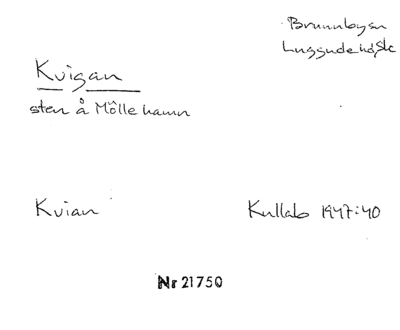 Brunnbysn
Luggude hd, Sk
Kvigan
sten å Mölle hamn
Kvian
Kullab 1947:40
Nr 21750